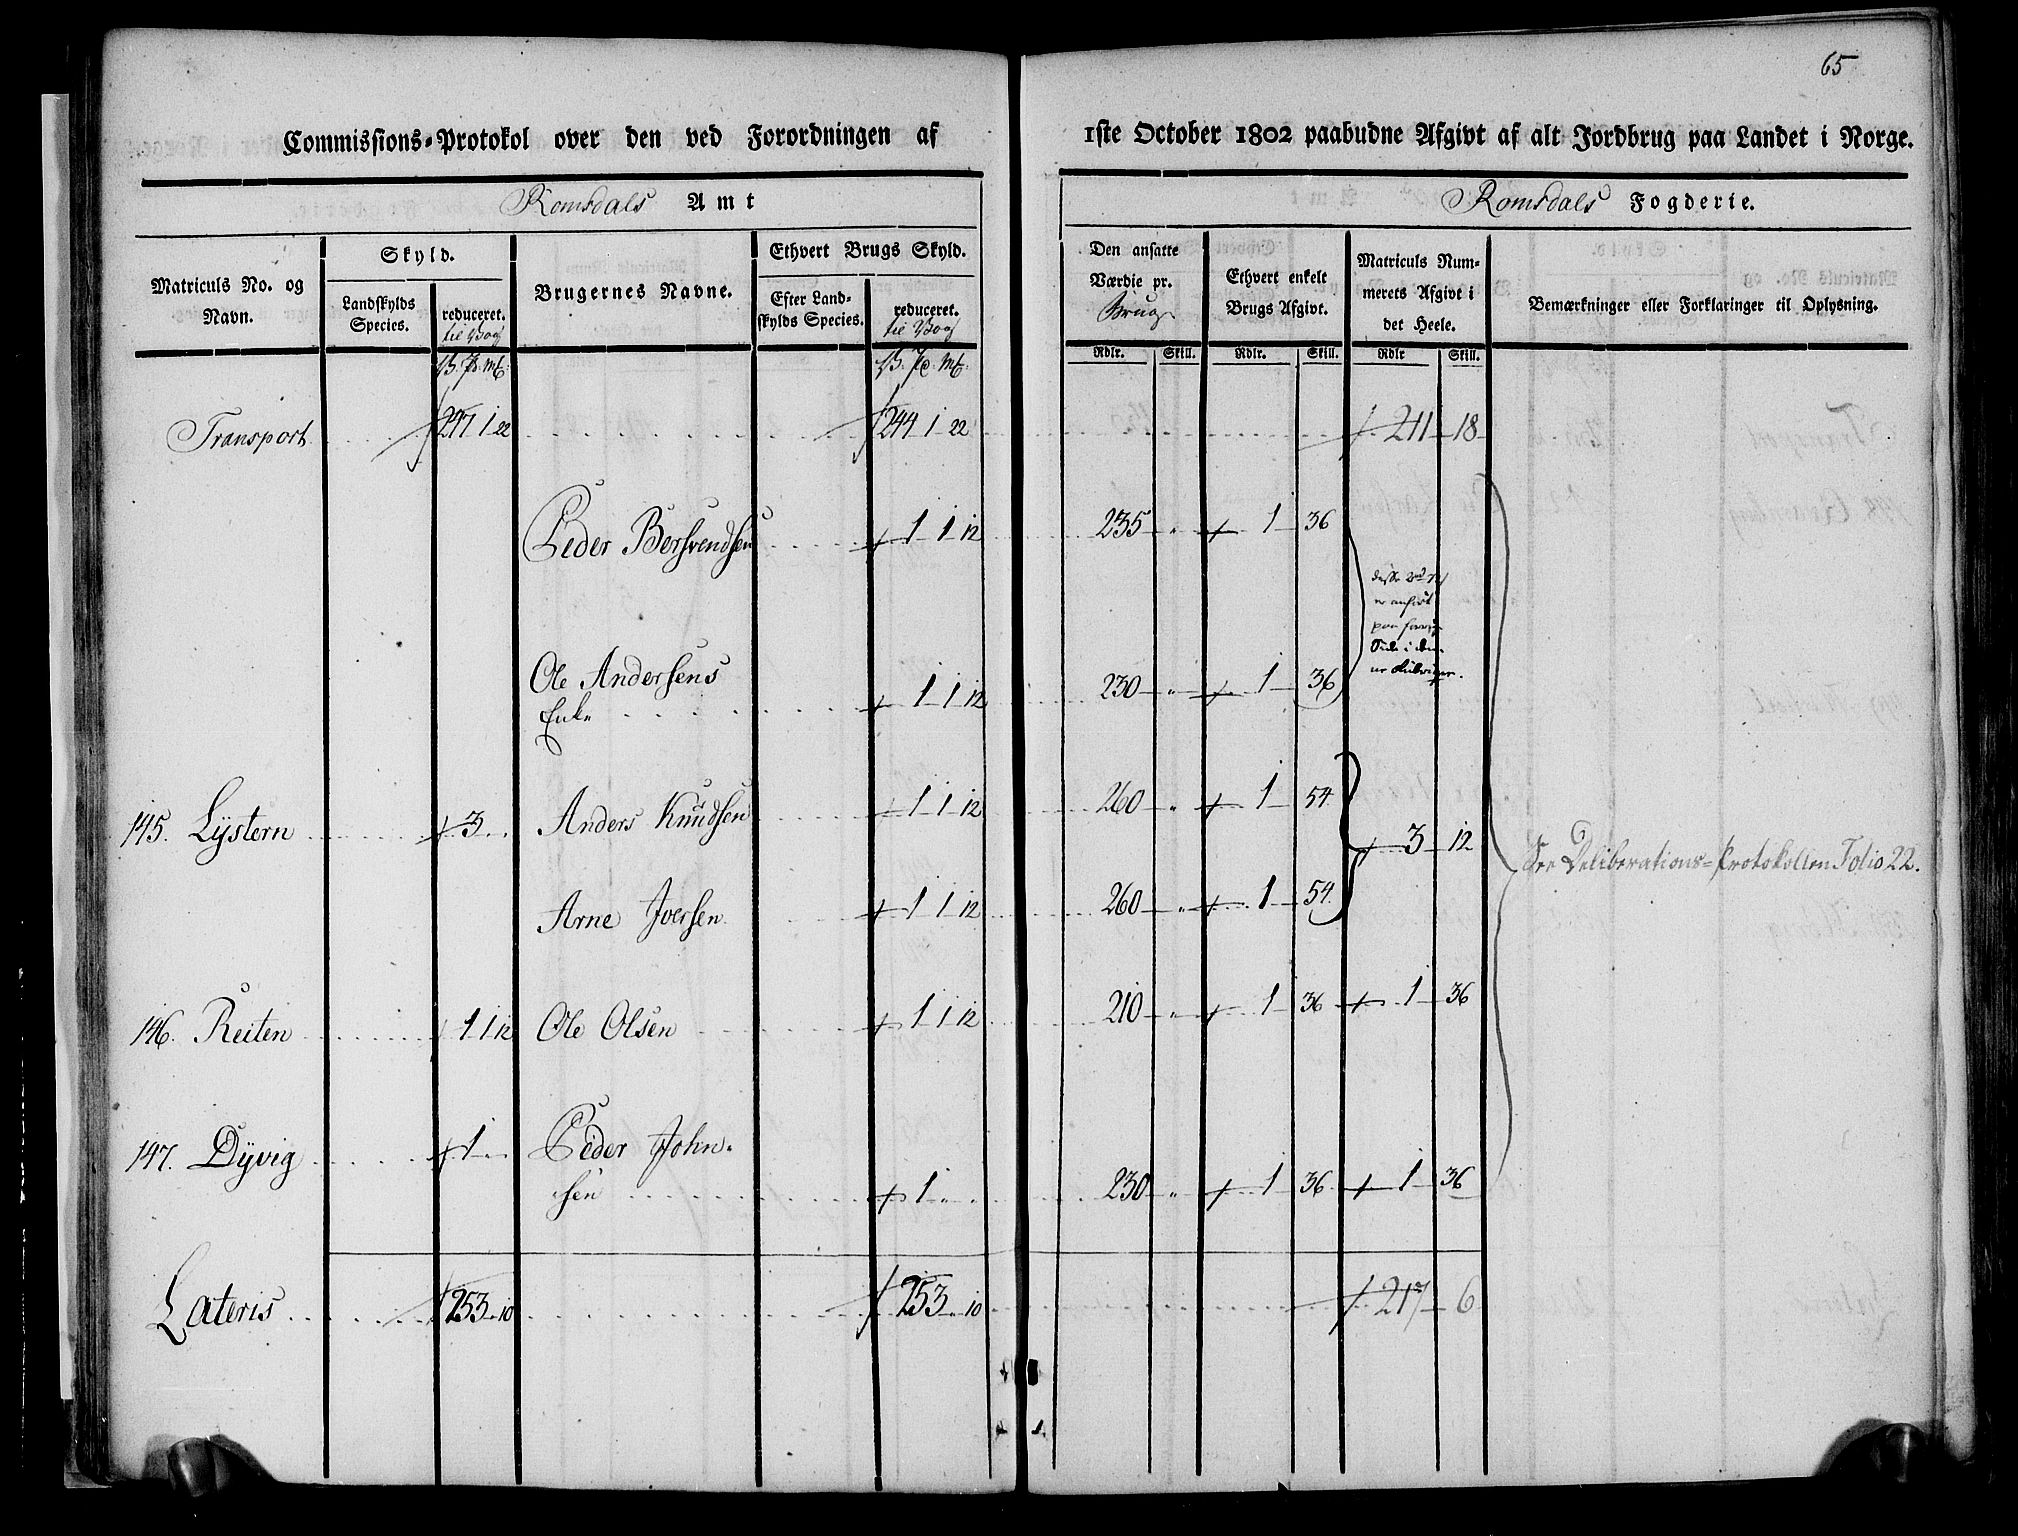 65
Commissions-Protokol over den ved Forordningen af 1ste October 1802 paabudne Afgivt af alt Jordbrug paa Landet i Norge.
Romsdals Amt
Romsdals Fogderie.
Matriculs No. og Navn.
Skyld.
Landskylds Species.
reduceret. til Vog
Brugernes Navne.
Ethvert Brugs Skyld.
Efter Landskylds Species.
reduceret. til Vog
Den ansatte Værdie pr. Brug
Ethvert enkelt Brugs Afgivt.
Matriculs Nummerets Afgivt i det Heele.
Bemærkninger eller Forklaringer til Oplysning.
Rdlr. Skill. Rdlr. Skill. Rdlr Skill.
Transport 247 1 22 244 1 22 211 18
Peder Bersvendsen 1 1 12 235 " 1 36
er anført
paa
Side i
Ole Andersens
Enke 1 1 12 230 " 1 36
145. Lystern 3 " Anders Knudsen 1 1 12 260 " 1 54
3 12
See Deliberations-Protokollen Folio 22.
Arne Joersen 1 1 12 260 " 1 54
146. Reiten 1 1 12 Ole Olsen 1 1 12 210 " 1 36 1 36
147. Dyvig 1 " Peder John-
sen 1 " 230 " 1 36 1 36
Lateris 253 " 10 253 " 10 217 6